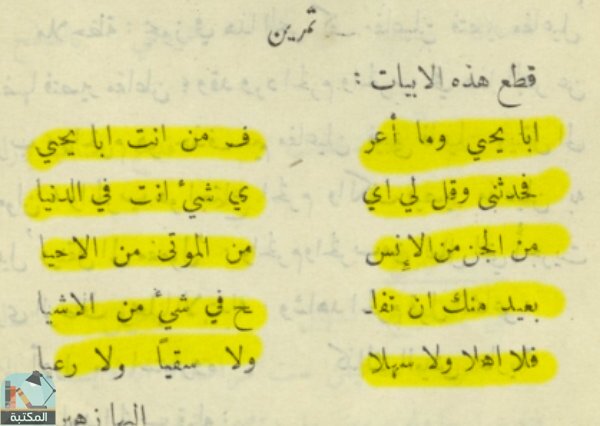 تمرين
قطع هذه الابيات :
ابا يحيي وما أعر ف من انت ابا يحيي
فحدثني وقل لي اي ي شيء انت في الدنيا
من الجن من الإنس من الموتى من الاحيا
بعيد منك ان تفا ح في شيء من الاشيا
فلا اهلا ولا سهلا ولا سقيًا ولا رعيًا
البها زهير
المكتبة